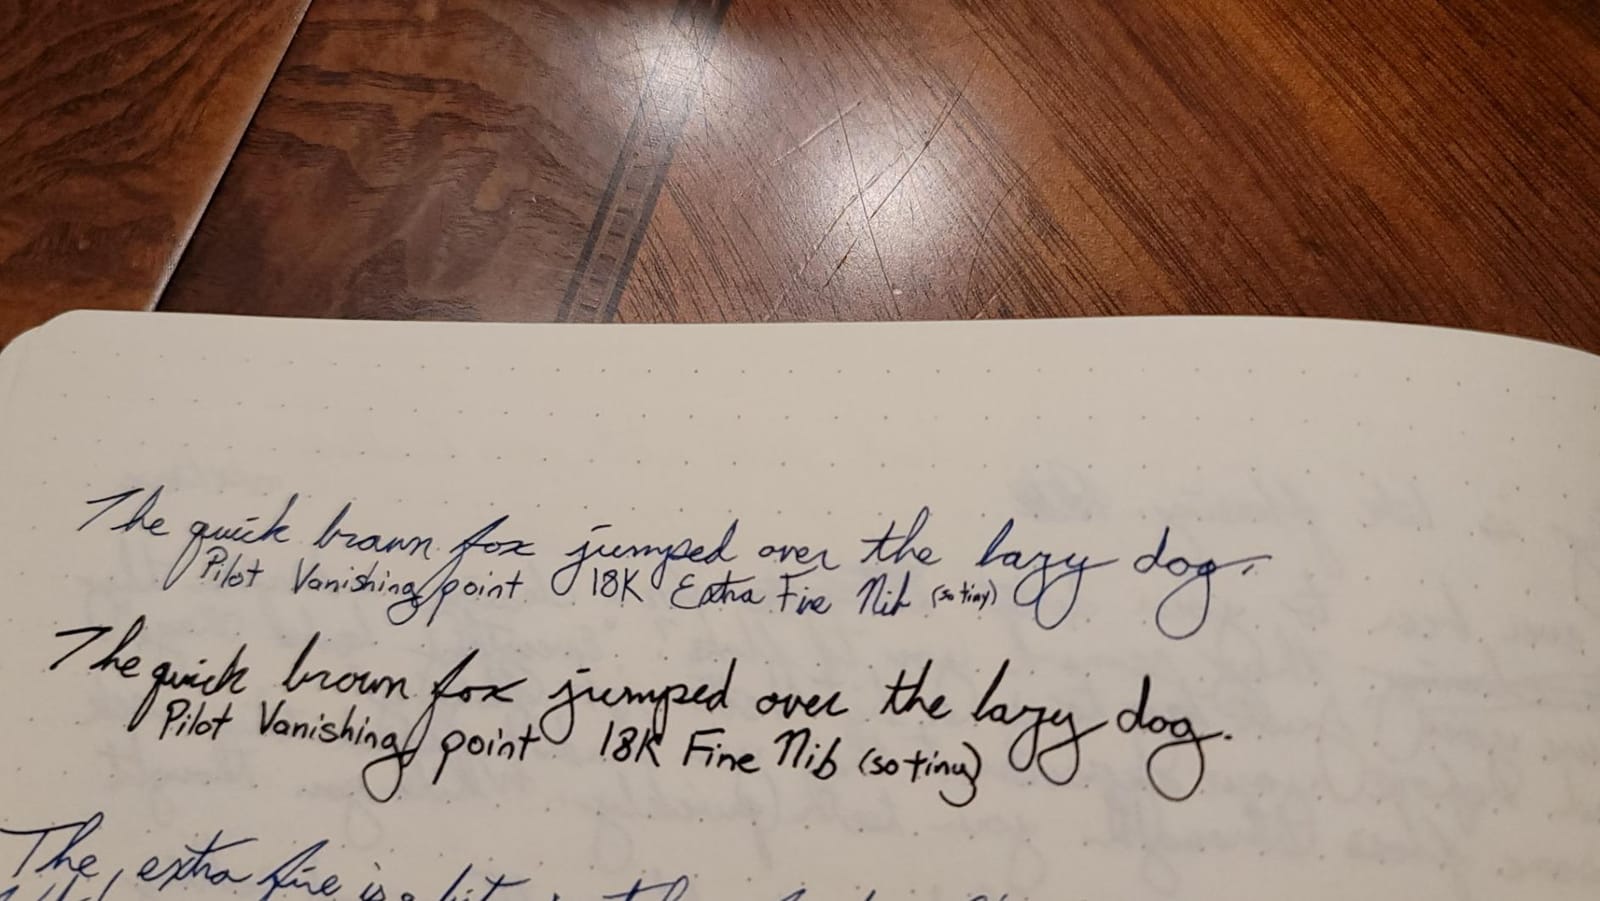 The quick brown fox jumped over the lazy dog.
Pilot Vanishing point 18K Extra Fine Nib (so tiny)
The quick brown fox jumped over the lazy dog.
Pilot Vanishing point 18K Fine Nib (so tiny)
The extra fine is a bit